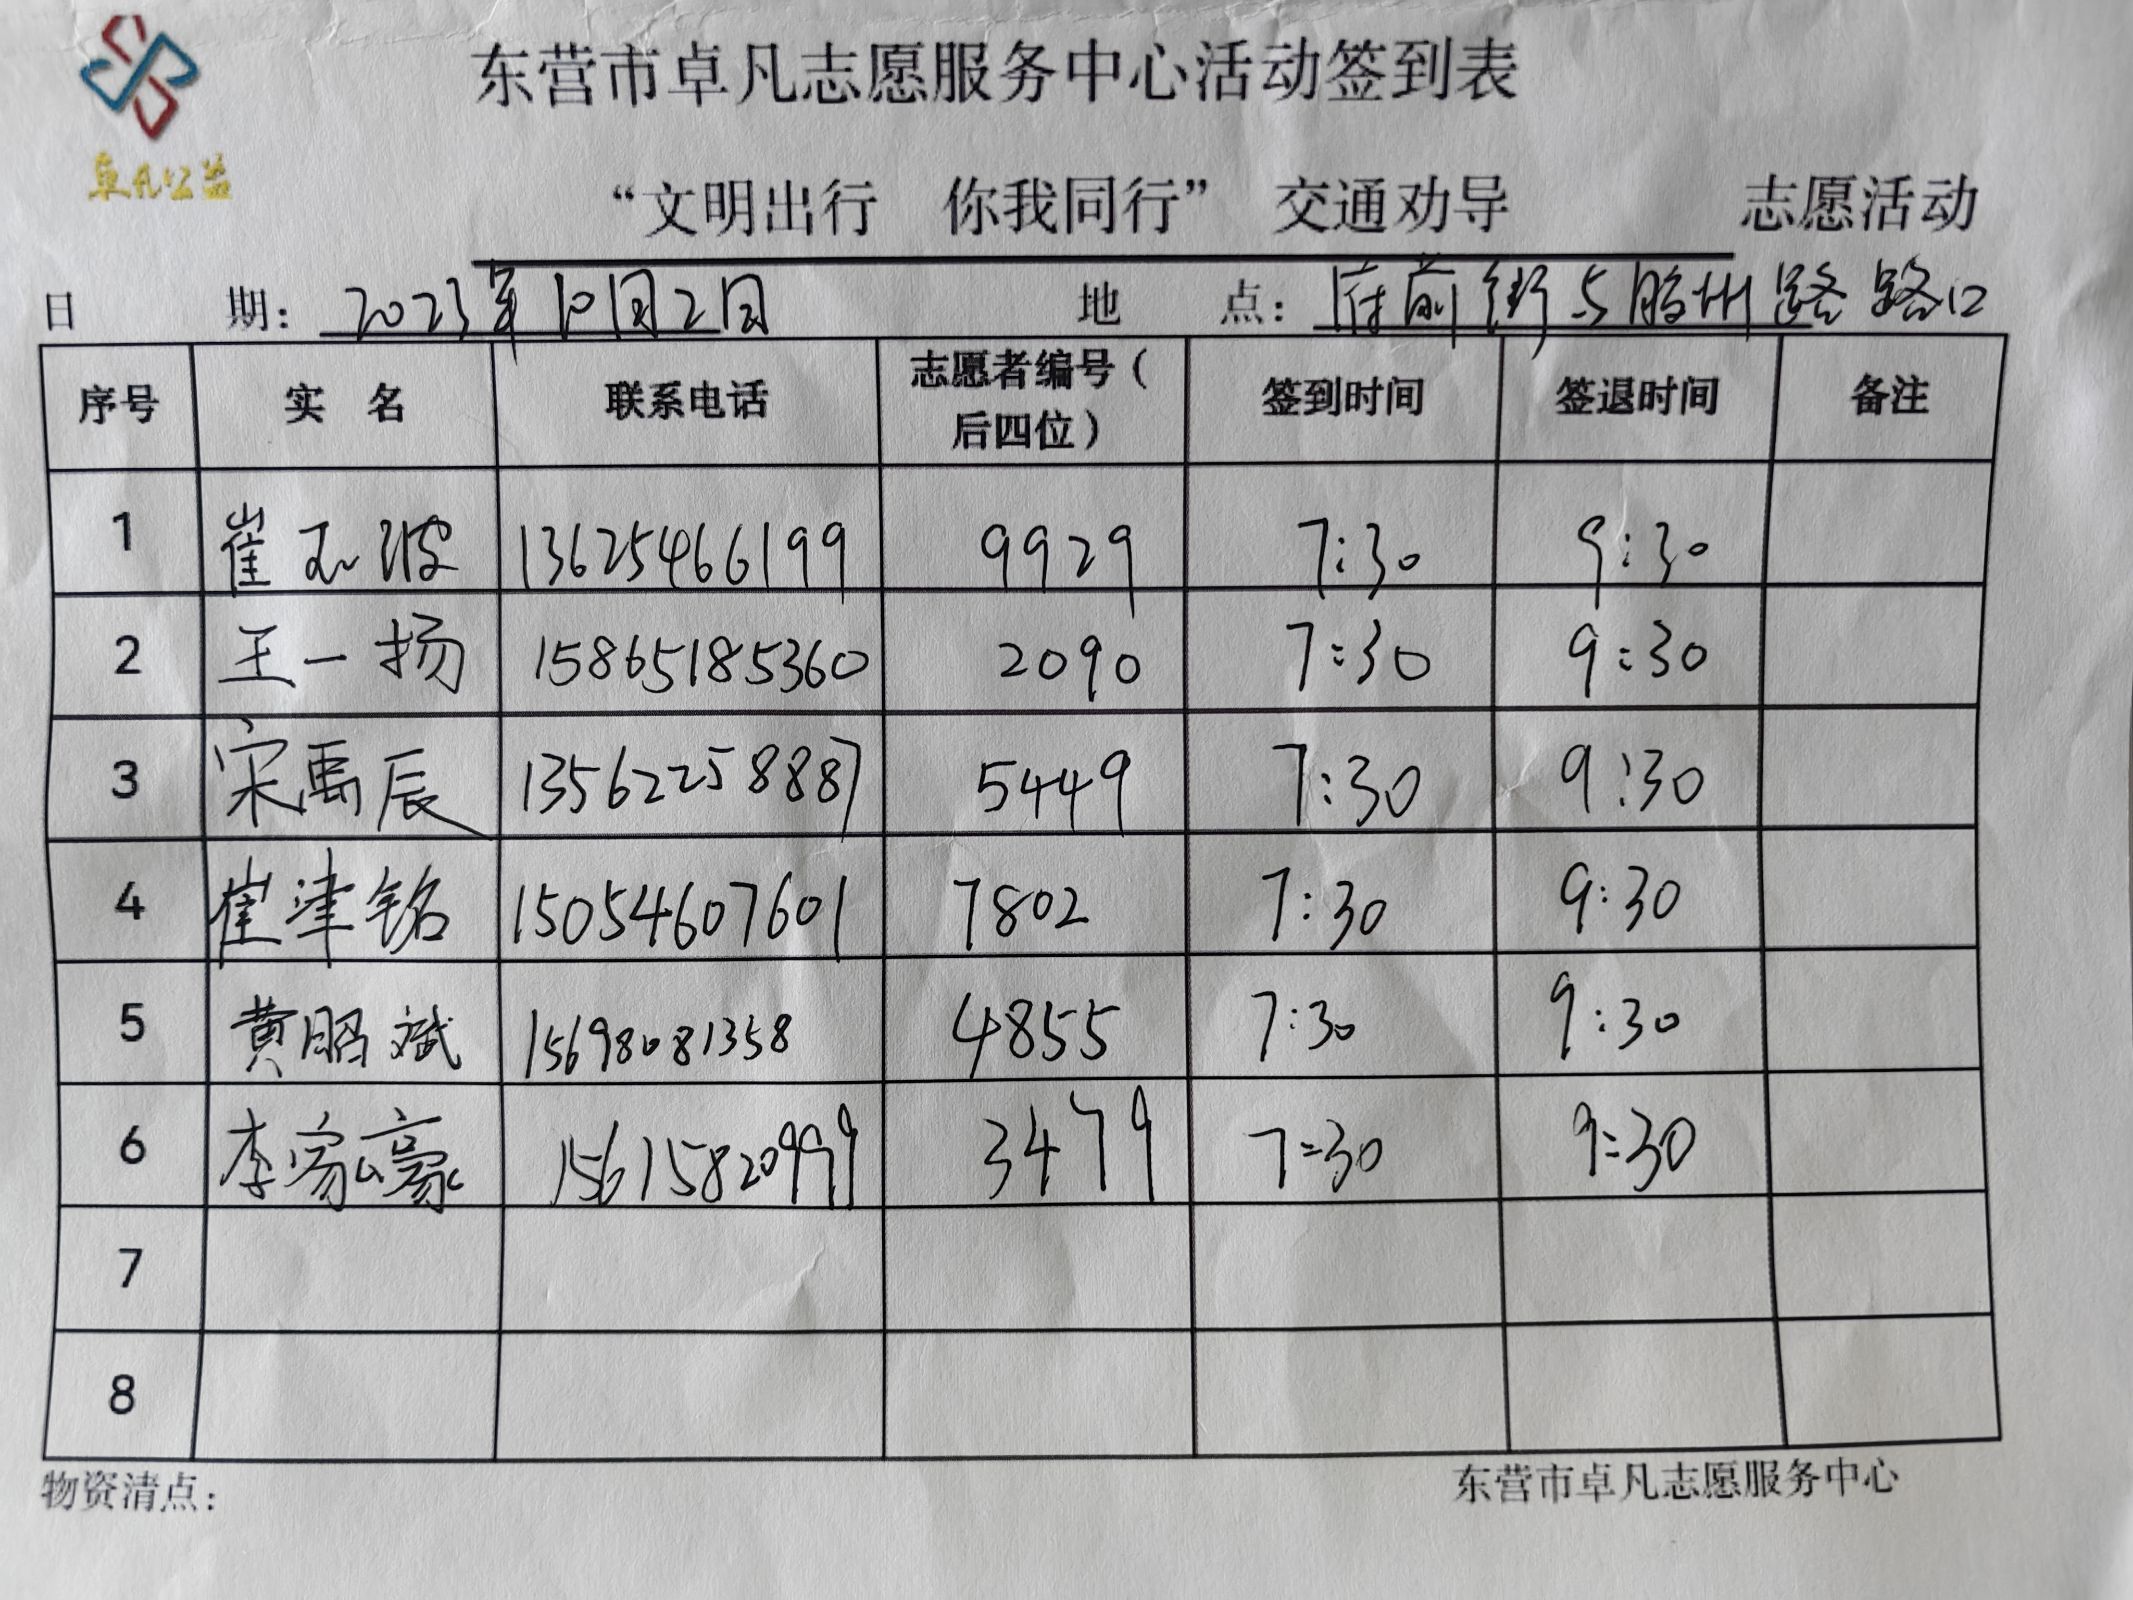 卓凡公益
东营市卓凡志愿服务中心活动签到表
“文明出行 你我同行” 交通劝导 志愿活动
日 期: 2023年10月2日 地 点: 府前街与胶州路路口
序号 实 名 联系电话 志愿者编号(后四位) 签到时间 签退时间 备注
1 崔玉波 13625466199 9929 7:30 9:30
2 王一扬 15865185360 2090 7:30 9:30
3 宋禹辰 13562258887 5449 7:30 9:30
4 崔津铭 15054607601 7802 7:30 9:30
5 黄昭斌 15698081358 4855 7:30 9:30
6 李家豪 15615820999 3479 7:30 9:30
7
8
物资清点: 东营市卓凡志愿服务中心